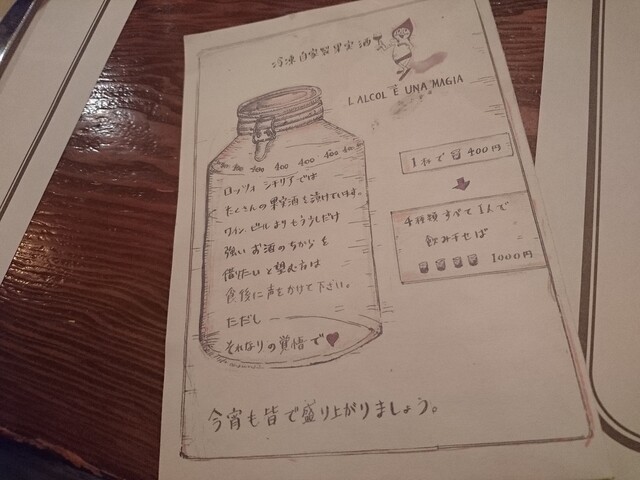 冷凍自家製果実酒
L'ALCOL È UNA MAGIA
400 400 400 400 40
ロッツォ シチリアでは
たくさんの果実酒を漬けています。
ワイン、ビールよりもう少しだけ
強いお酒のちからを
借りたいと望む方は
食後に声をかけて下さい。
ただし
それなりの覚悟で♥
1杯で 400円
4種類すべて1人で
飲み干せば
1000円
今宵も皆で盛り上がりましょう。